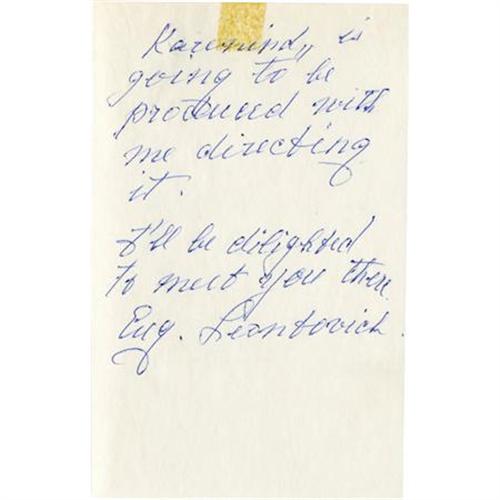 Karenina„ is
going to be
produced with
me directing
it.
I'll be dilighted
to meet you there.
Eug. Leontovich.